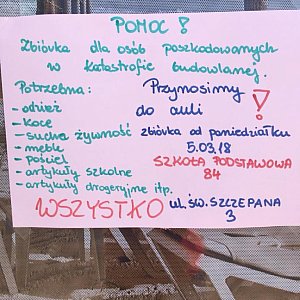 POMOC !
Zbiórka dla osób poszkodowanych
w katastrofie budowlanej.
Potrzebna:
- odzież
- koce
- sucha żywność
- meble
- pościel
- artykuły szkolne
- artykuły drogeryjne itp.
WSZYSTKO
Przynosimy
do auli !
zbiórka od poniedziałku
5.03.18
SZKOŁA PODSTAWOWA
84
ul. ŚW. SZCZEPANA
3